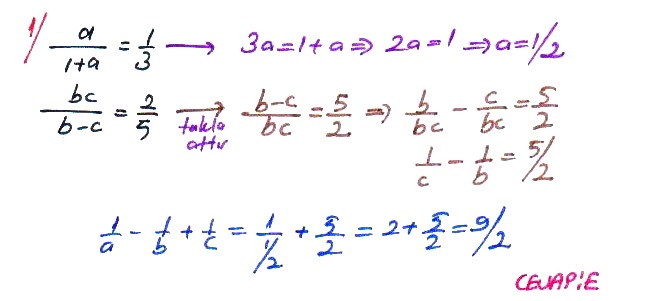 1/ a/(1+a) = 1/3 → 3a=1+a ⇒ 2a=1 ⇒ a=1/2
bc/(b-c) = 2/5 → takla attır (b-c)/bc = 5/2 ⇒ b/bc - c/bc = 5/2
1/c - 1/b = 5/2
1/a - 1/b + 1/c = 1/(1/2) + 5/2 = 2 + 5/2 = 9/2
CEVAP:E